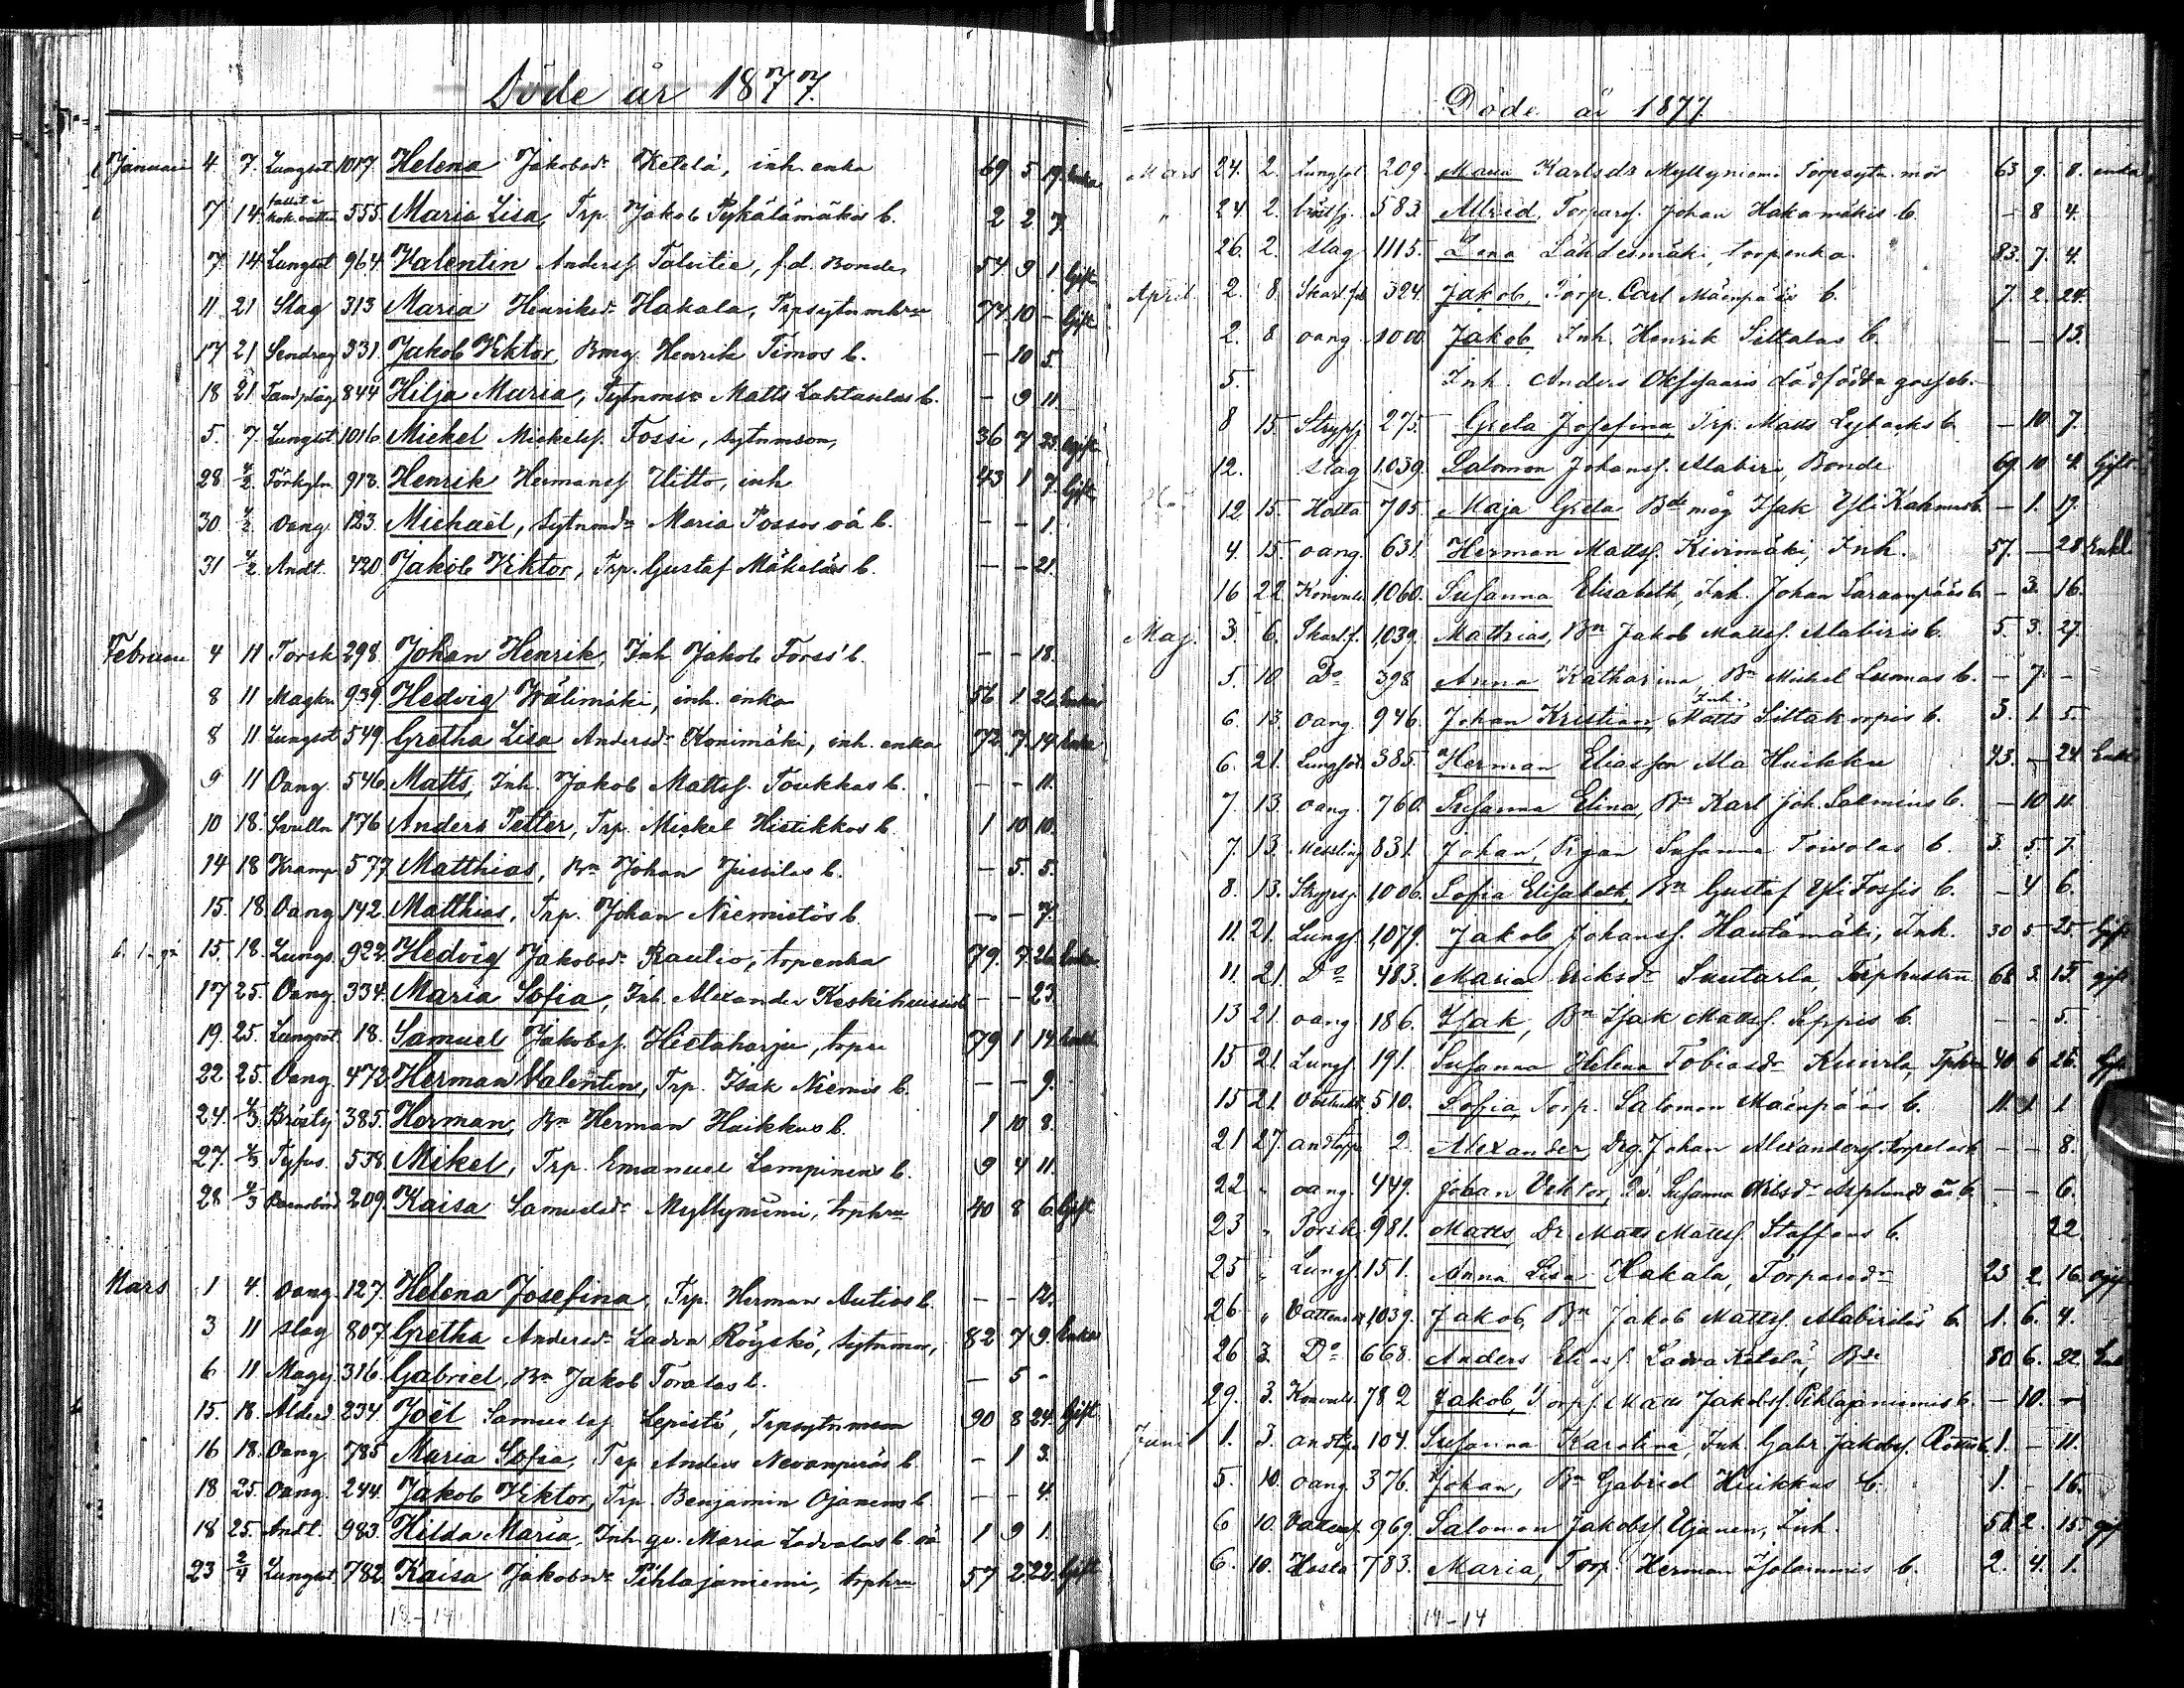 Döde år 1877.
Januari 4. 7. Lungsot 1017. Helena Jakobsdr Ketelä, inh. enka 69 5 19. Enka
7 14. fallit i hok. vatten 555. Maria Lisa, Trp. Jakob Pykälämäkis b. 2 2 7.
7. 14. Lungsot 964. Valentin Anderss. Talvitie, f.d. Bonde, 54 9 1. Gift
11 21 Slag 313 Maria Henriksdr Hakala, Trpsytnmhru 74. 10 - Gift
17 21 Sendrag 331. Jakob Viktor, Bmg. Henrik Timos b. - 10 5.
18 21. Tandplåg 844 Hilja Maria, Sytnmsr Matts Lahtaselas b. - 9 11.
5. 7. Lungsot 1016. Mickel Mickelss. Fossi, sytnmson, 36 7 23. Ogift
28 4/2. Förkyln. 913. Henrik Hermanss. Uitto, inh 43 1 7. Gift
30. 4/2. Oang. 123. Michaël, sytnmdr Maria Possos oä b. - - 1.
31 4/2. Andt. 420 Jakob Viktor, Trp. Gustaf Mäkeläs b. - - 21.
Februari 4 11 Torsk 298. Johan Henrik, Inh. Jakob Forss' b. - - 18.
8 11 Magkr. 939. Hedvig Wälimäki, inh. enka 56 1 26. Enka
8 11 Lungsot 549. Gretha Lisa Andersdr Konimäki, inh. enka 72. 7. 14. Enka
9 11 Oang. 546. Matts, Inh. Jakob Mattss. Toukkas b. - - 11.
10 18. Svulln 176 Anders Petter, Trp. Mickel Histikkos b. 1 10 10.
14 18 Kramp. 577 Matthias, Bn Johan Jussilas b. - 5. 5.
15. 18. Oang. 142. Matthias, Trp. Johan Niemistös b. - - 7.
15. 18. Lungs. 922. Hedvig Jakobsdr Rautio, torpenka 79. 7 26. Enka
17 25. Oang. 334. Maria Sofia, Inh. Alexander - - 23.
19. 25. Lungsot. 18. Samuel Jakobss. Hietaharju, torpu 79 1 14. Enkl.
22 25. Oang. 472 Herman Valentin, Trp. Isak Niemis b. - - 9.
24. 4/3 Bröstsj 385. Herman, Bn Herman Huikkus b. 1 10 8.
27. 4/3 Tyfus. 538. Mikel, Trp. Emanuel Lampinens b. 9 4 11.
28 4/3 Barnsbörd 209. Kaisa Samuelsdr Myllyniemi, torphru 40 8 6. Gift
Mars 1 4. Oang. 127. Helena Josefina, Trp. Herman Autios b. - - 12.
3 11 slag 807. Gretha Andersdr Ladva Röyskö, sytnmor, 82 7 9. Enka
6 11 Magsj. 316. Gabriel, Bn Jakob Toralas b. - 5 -
15. 18. Alderd. 234. Joël Samuelss. Lepistö, Trpsytnman 90 8 24. Gift
16 18. Oang. 785 Maria Sofia, Trp. Anders Nevanperäs b. - 1 3.
18 25. Oang. 244. Jakob Viktor, Trp. Benjamin Ojanens b. - - 4.
18 25. Andt. 983. Hilda Maria, Inh. qv. Maria Ladvalas b. oä 1 9 1.
23 2/4 Lungsot. 782. Kaisa Jakobsdr Pihlajaniemi, torphru 57 2. 22. Gift
18-14
Döde år 1877.
Mars 24. 2. Lungsot 209. Maria Karlsdr Myllyniemi Torpsytn. mor 63 9. 8. enka
" 24 2. bröstsj. 583. Alfrid, Torpars. Johan Hakamäkis b. - 8 4.
26. 2. slag 1115. Lena Lähdesmäki, torpenka. 83. 7. 4.
April. 2. 8. Skarl. feb 324. Jakob, Torp. Carl Mäenpääs b. 7. 2. 24.
2. 8 oang. 1000. Jakob, Inh. Henrik Siltalas b. - - 13.
5. Inh. Anders dödfödda gosseb. -
8 15. Strypsj. 275. Greta Josefina, Trp. Matts b. - 10 7.
12. slag 1039. Salomon Johanss. Alabiri, Bonde 69. 10 4. Gift
12. 15. Hosta 705. Maja Greta Bde måg Isak Yli Kahmas b. - 1. 17.
4. 15. oang. 631. Herman Mattss. Kivimäki, Inh. 57. - 28 Enkl.
16 22. Konvuls. 1060. Susanna Elisabeth, Inh. Johan b. - 3. 16.
Maj. 3. 6. Skarl. f. 1039. Mathias, Bn Jakob Mattss. Alabiris b. 5. 3. 27.
5. 10 Do 398 Anna Katharina, Bn Mickel Luomas b. - 7. -
6. 13. oang. 946. Johan Kristian, Inh. Matts Siltakorpis b. 3. 1. 5.
6. 21. Lungsot. 385. Herman Eliasson Ala Huikku 43. - 24. Enkl.
7. 13. oang. 760. Susanna Elina, Bn Karl Joh. Salmius b. - 10 11.
7. 13. Messling 831. Johan, Pigan Susanna Toivolas b. 3. 5. 7.
8. 13. Strypsj. 1006. Sofia Elisabeth, Bn Gustaf Yli Fossis b. - 4 6.
11. 21. Lungs. 1079. Jakob Johanss. Hautamäki, Inh. 30 5 25. Gift
11. 21. Do 483. Maria Eriksdr Suutarla, Torphustru 68 3. 15. gift
13 21. oang 186. Isak, Bn Isak Mattss. Seppis b. - - 5.
15 21. Lungs. 191. Susanna Helena Tobiasdr Kuurla, Tphru 40 6 25. Gift
15 21. 510. Sofia, Torp. Salomon Mäenpääs b. 11. 1 1
21 27. andtäppa 2. Alexander, Drg. Johan Alexanderss. b. - - 8.
22. " oang. 449. Johan Viktor, Qv. Susanna Nilsdr Asplunds oä b. - - 6.
23 " Torsk. 981. Matts, Dr Matts Mattss. Staffans b. 22
25 " Lungs. 151. Anna Lisa Hakala, Torparedr 23 2 16. Ogift
26 " Vattens. 1039. Jakob, Bn Jakob Mattss. Alabiriläs b. 1. 6. 4.
26 3. Do 668. Anders Eliass. Ladva Ketelä, Bde 80 6. 22. Enkl
29. 3. Konvuls. 782 Jakob, Torps. Matts Jakobss. Pihlajaniemis b. - 10. -
Juni 1. 3. andtäpa 104. Susanna Karolina, Inh. Gabr. Jakobss. b. 1. - 11.
5. 10. oang. 376. Johan, Bn Gabriel Huikkus b. 1. - 16.
6 10. Vattens. 969. Salomon Jakobss. Ujanen, Inh. 51. 2. 15. gift
6. 10. Hosta 783. Maria, Torp. Herman b. 2. 4. 1.
14-14